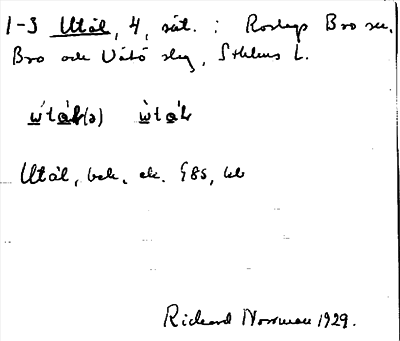 1-3 Utål, 4, sát. : Roslags Bro sn.
Bro och Vätö slg, Sthlms L.
Utål, bek. ek. §85, kb
Rickard Norrman 1929.